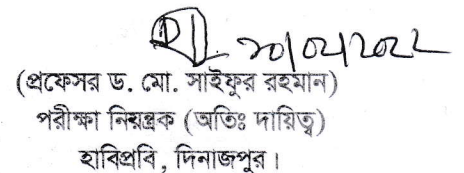 ২০/০২/২০২২
(প্রফেসর ড. মো. সাইফুর রহমান)
পরীক্ষা নিয়ন্ত্রক (অতিঃ দায়িত্ব)
হাবিপ্রবি, দিনাজপুর।